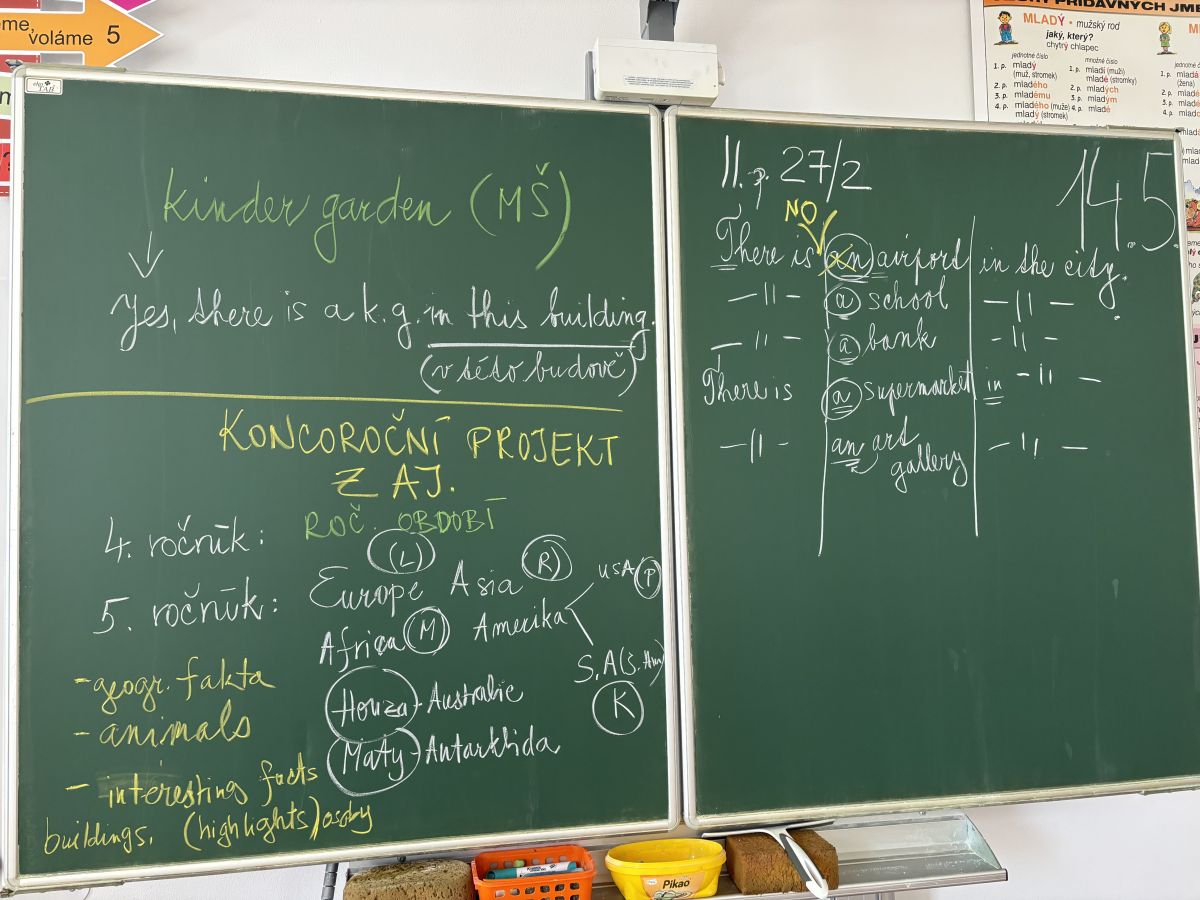 eme,
voláme 5
kinder garden (MŠ)
Yes, there is a k.g. in this building.
(v této budově)
KONCOROČNÍ PROJEKT
Z AJ.
4. ročník: ROČ. OBDOBÍ
(L)
5. ročník: Europe Asia (R) USA (P)
Africa (M) Amerika
S.A (J. Am)
K
- geogr. fakta
Honza - Australie
- animals
Maty - Antarktida
- interesting facts
buildings. (highlights) osoby
II. p. 27/2
14.5.
NO
There is an airport in the city.
—〃— a school —〃—
—〃— a bank —〃—
There is a supermarket in —〃—
—〃— an art gallery —〃—
PŘÍDAVNÝCH JME
MLADÝ • mužský rod
jaký, který?
chytrý chlapec
jednotné číslo
množné číslo
1. p. mladý
(muž, stromek)
2. p. mladého
3. p. mladému
4. p. mladého (muže)
mladý (stromek)
1. p. mladí (muži)
mladé (stromky)
2. p. mladých
3. p. mladým
4. p. mladé
Pikao